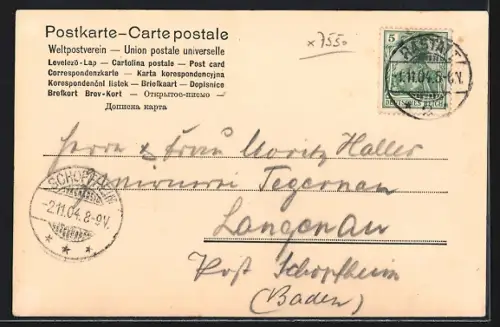 Postkarte–Carte postale
Weltpostverein — Union postale universelle
Levelező-Lap — Cartolina postale — Post card
Correspondenzkarte — Karta korespondencyjna
Korespondenční listek — Briefkaart — Dopisnice
Brefkort Brev-Kort — Открытое-письмо —
Дописна карта
x 7550
5
DEUTSCHES REICH
RASTATT
-1.11.04.8-9.V.
Herrn & Frau Moritz Haller
Tegernau
Langenau
Post Schopfheim
(Baden)
SCHOPFHEIM
-2.11.04.8-9V.